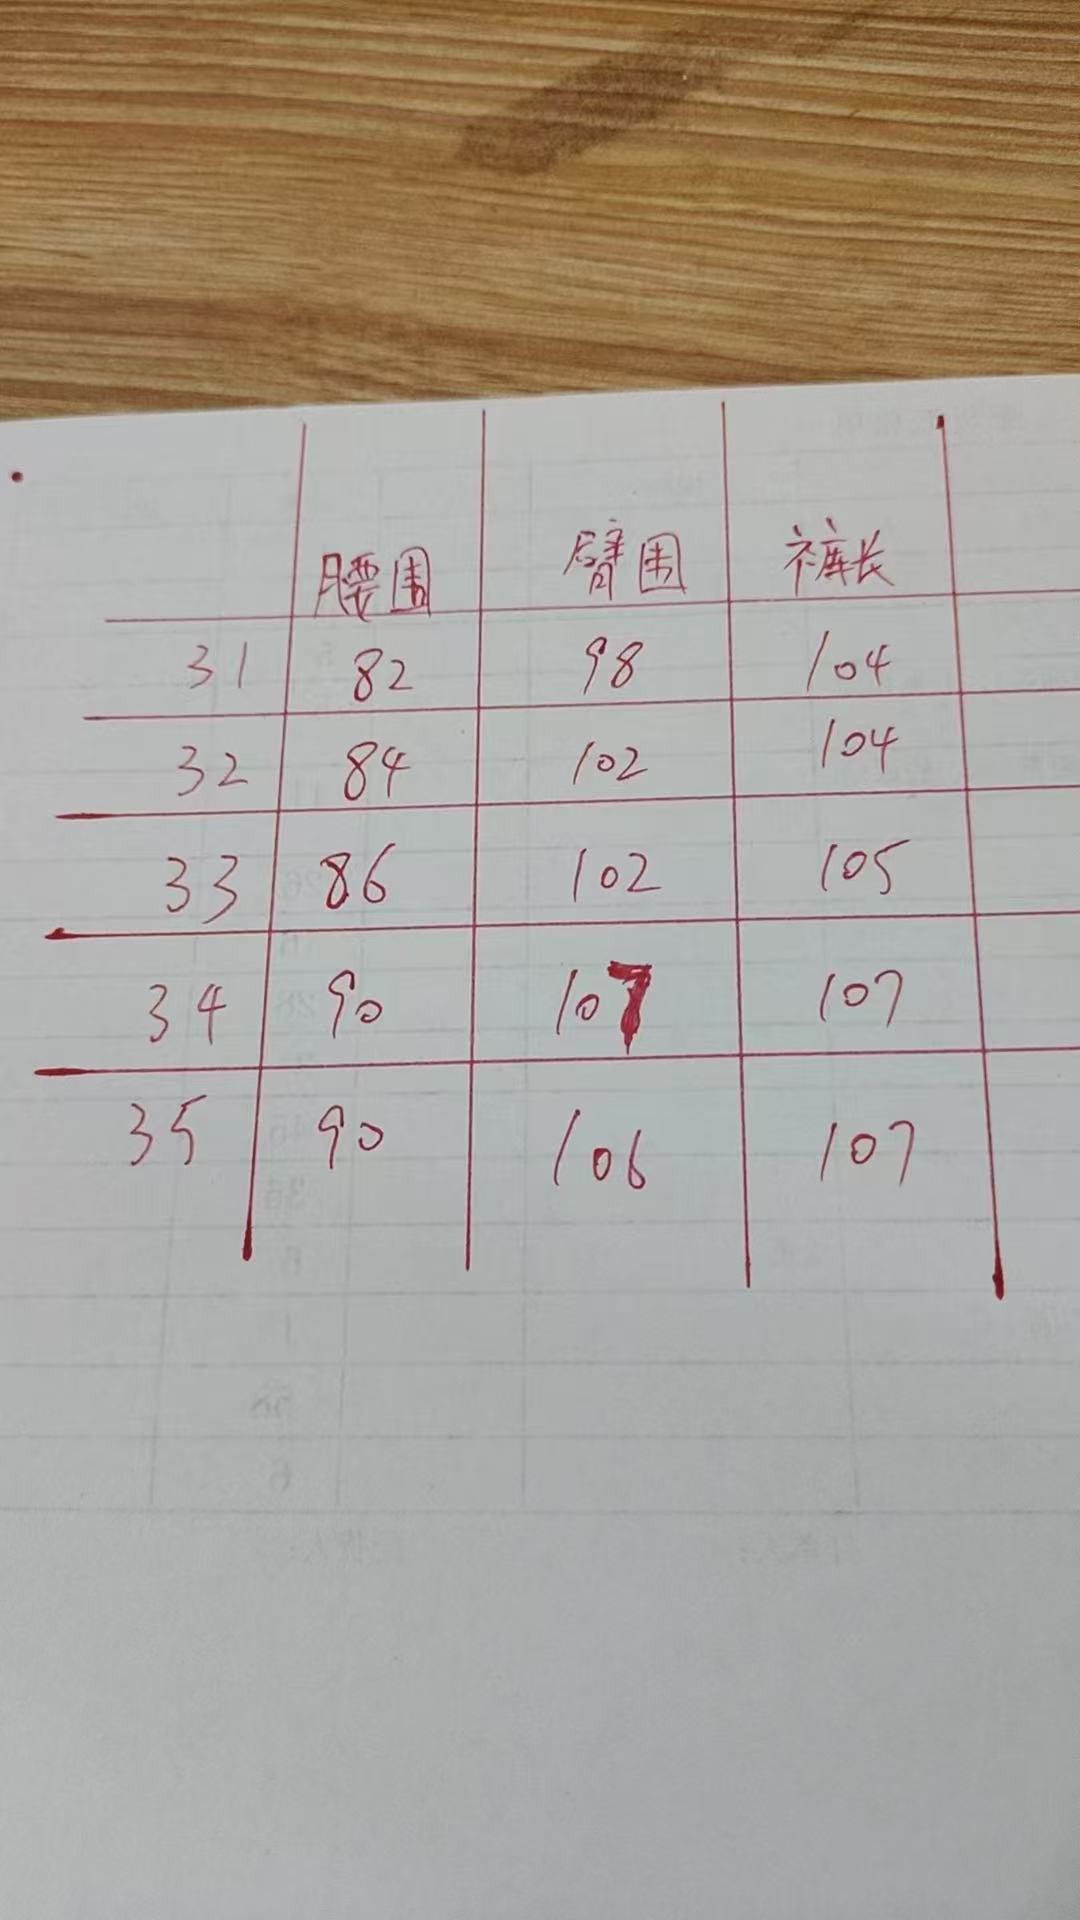 腰围 臂围 裤长
31 82 98 104
32 84 102 104
33 86 102 105
34 90 107 107
35 90 106 107